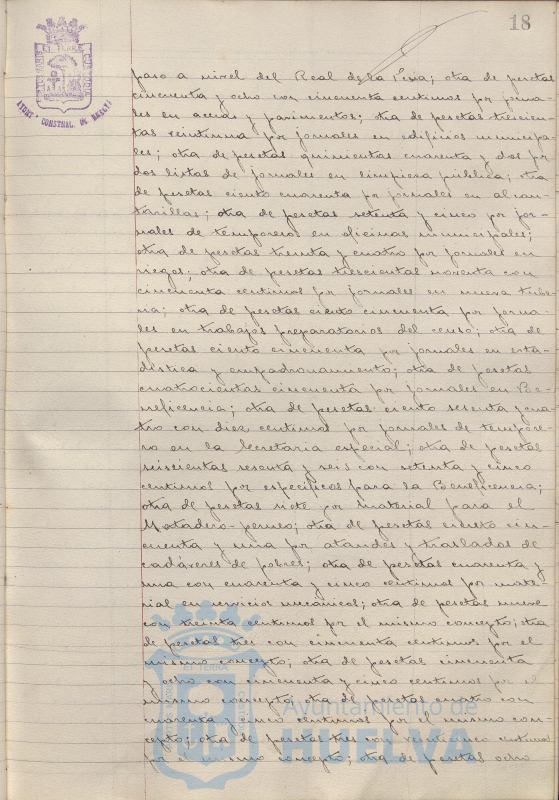 18
AYUNT° CONSTNAL. DE HUELVA
paso a nivel del Real de la Peña; otra de pesetas
cincuenta y ocho con cincuenta centimos por jorna-
les en aceras y pavimentos; otra de pesetas trescien-
tas veintiuna por jornales en edificios municipa-
les; otra de pesetas quinientas cuarenta y dos por
dos listas de jornales en limpieza pública; otra
de pesetas ciento cuarenta por jornales en alcan-
tarillas; otra de pesetas setenta y cinco por jor-
nales de temporeros en oficinas municipales;
otra de pesetas treinta y cuatro por jornales en
riegos; otra de pesetas trescientas noventa con
cincuenta centimos por jornales en nueva tube-
ria; otra de pesetas ciento cincuenta por jorna-
les en trabajos preparatorios del censo; otra de
pesetas ciento cincuenta por jornales en esta-
distica y empadronamiento; otra de pesetas
cuatrocientas cincuenta por jornales en Be-
neficencia; otra de pesetas ciento sesenta y cua-
tro con diez centimos por jornales de tempore-
ro en la Secretaria especial; otra de pesetas
seiscientas sesenta y seis con setenta y cinco
centimos por especificos para la Beneficencia;
otra de pesetas siete por material para el
Matadero-perneo; otra de pesetas ciento cin-
cuenta y una por ataudes y traslados de
cadáveres de pobres; otra de pesetas cuarenta y
una con cuarenta y cinco centimos por mate-
rial en servicios mecánicos; otra de pesetas nueve
con treinta centimos por el mismo concepto; otra
de pesetas tres con cincuenta centimos por el
mismo concepto; otra de pesetas cincuenta
y ocho con cincuenta y cinco centimos por el
mismo concepto; otra de pesetas cuatro con
cuarenta y cinco centimos por el mismo con-
cepto; otra de pesetas tres con veinticinco centimos
por el mismo concepto; otra de pesetas ocho
Ayuntamiento de
HUELVA